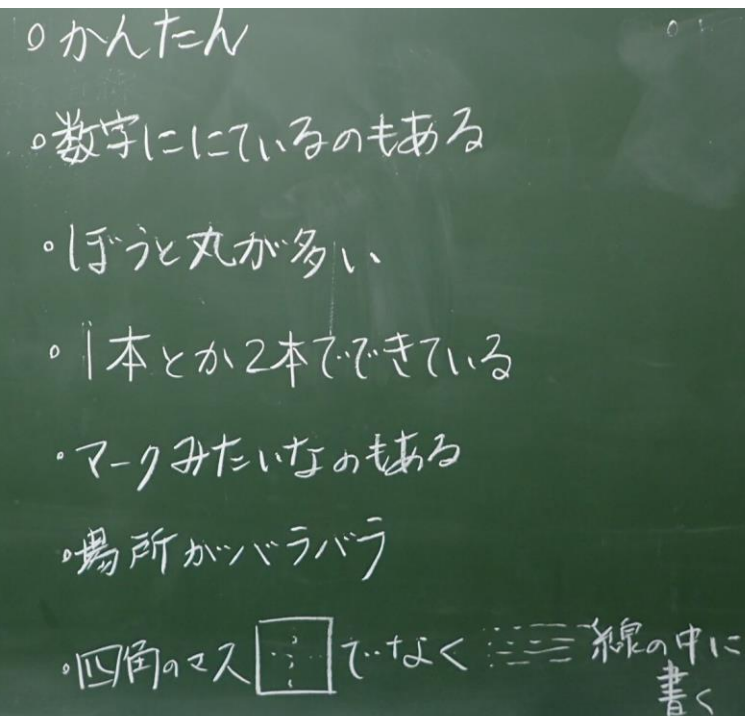 ○かんたん
○数字ににているのもある
○ぼうと丸が多い
○1本とか2本でできている
○マークみたいなのもある
○場所がバラバラ
○四角のマスでなく線の中に
書く